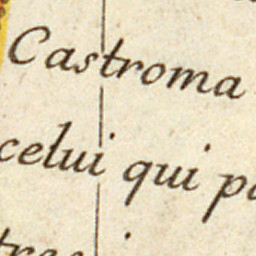 Castroma
celui qui